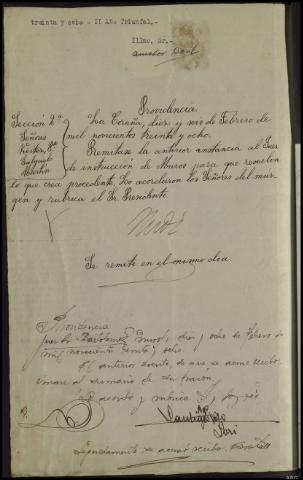 treinta y ocho - II Año Triunfal.-
Illmo. Sr.-
Amador Dant
Providencia
Sección 2ª
Señores
La Coruña, diez y seis de Febrero de
mil novecientos treinta y ocho.
Remítase la anterior instancia al Juez
de instrucción de Muros para que resuelva
lo que crea procedente. Lo acordaron los Señores del mar-
gen y rubrica el Sr. Presidente.
Se remite en el mismo dia.
Providencia
Juez Sr. Muros, diez y ocho de Febrero de
mil novecientos treinta y ocho.
El anterior escrito, de que se acuse recibo,
únase al sumario de su razón.
Lo acordó y rubrica S. Sª, doy fé
Seguidamente se acusó recibo.